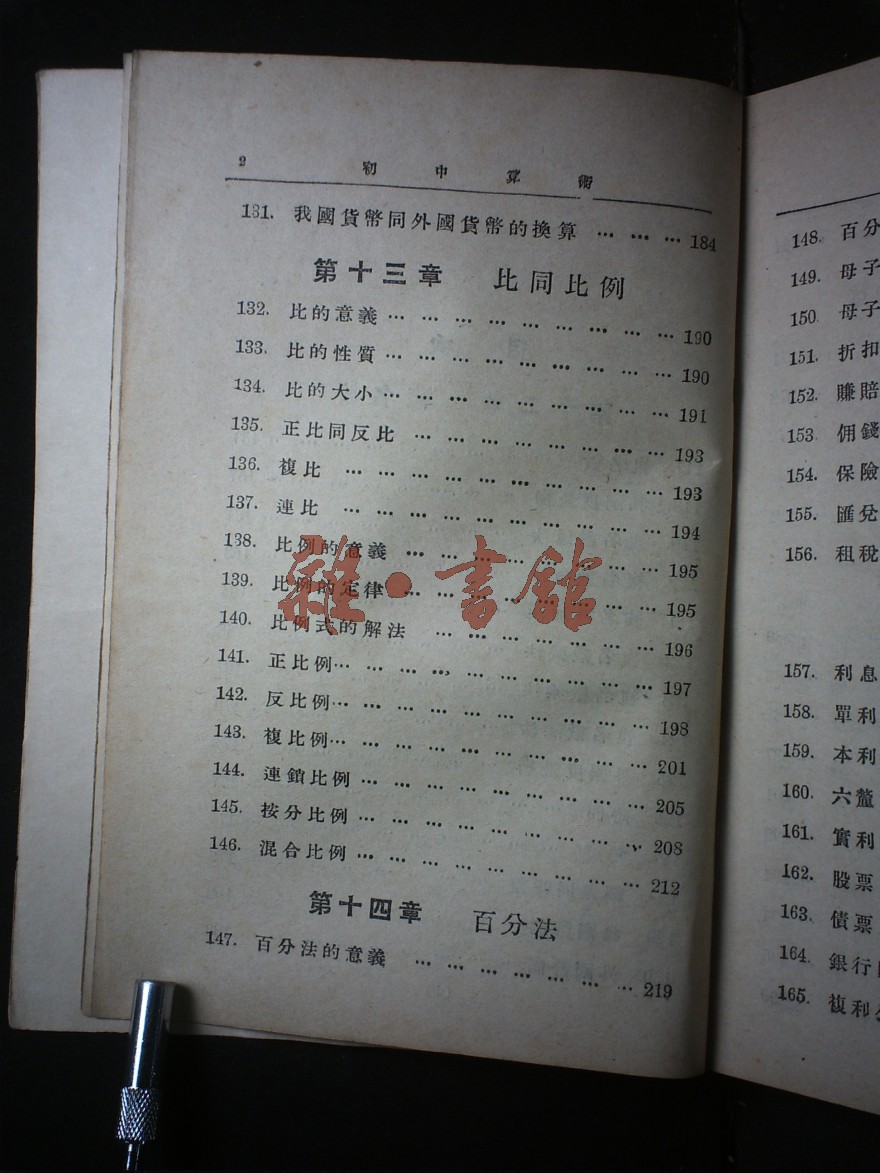 2 初中算術
131. 我國貨幣同外國貨幣的換算 … … … 184
第十三章 比同比例
132. 比的意義 … … … … … … … … … 190
133. 比的性質 … … … … … … … … … 190
134. 比的大小 … … … … … … … … … 191
135. 正比同反比 … … … … … … … … 193
136. 複比 … … … … … … … … … … 193
137. 連比 … … … … … … … … … … 194
138. 比例的意義 … … … … … … … … 195
139. 比例的定律 … … … … … … … … 195
140. 比例式的解法 … … … … … … … 196
141. 正比例 … … … … … … … … … … 197
142. 反比例 … … … … … … … … … … 198
143. 複比例 … … … … … … … … … … 201
144. 連鎖比例 … … … … … … … … … 205
145. 按分比例 … … … … … … … … … 208
146. 混合比例 … … … … … … … … … 212
第十四章 百分法
147. 百分法的意義 … … … … … … … 219
雜·書館
148. 百分
149. 母子
150. 母子
151. 折扣
152. 賺賠
153. 佣錢
154. 保險
155. 匯兌
156. 租稅
157. 利息
158. 單利
159. 本利
160. 六釐
161. 實利
162. 股票
163. 債票
164. 銀行
165. 複利